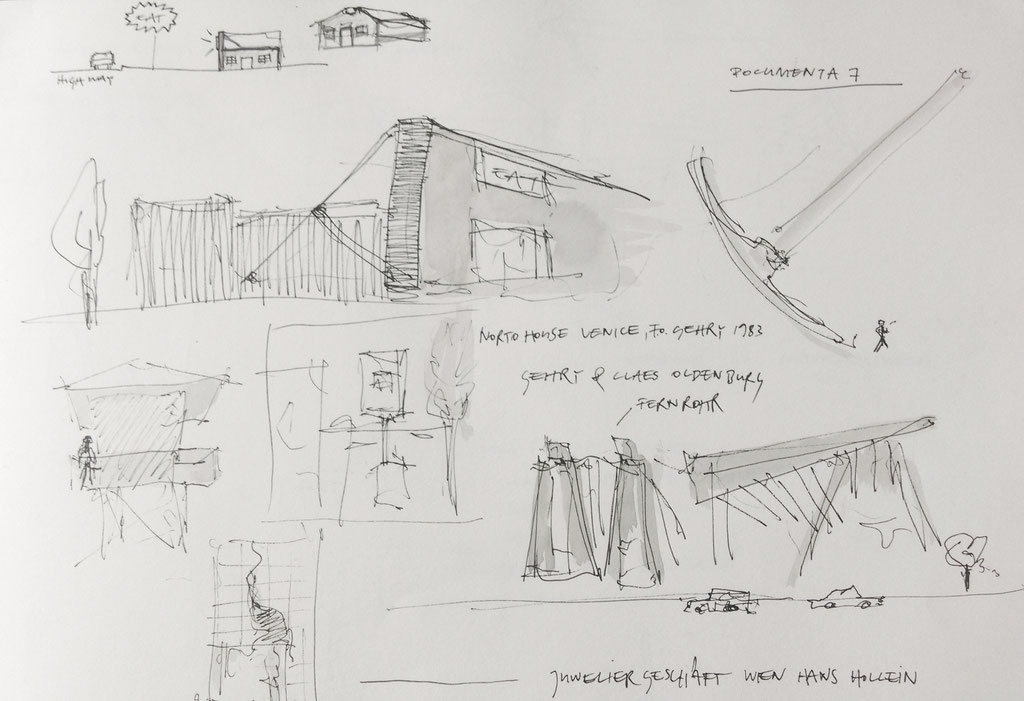 EAT
HIGHWAY
DOCUMENTA 7
EAT
NORTO HOUSE VENICE, FO. GEHRY 1983
GEHRY & CLAES OLDENBURG
FERNROHR
JUWELIERGESCHÄFT WIEN HANS HOLLEIN